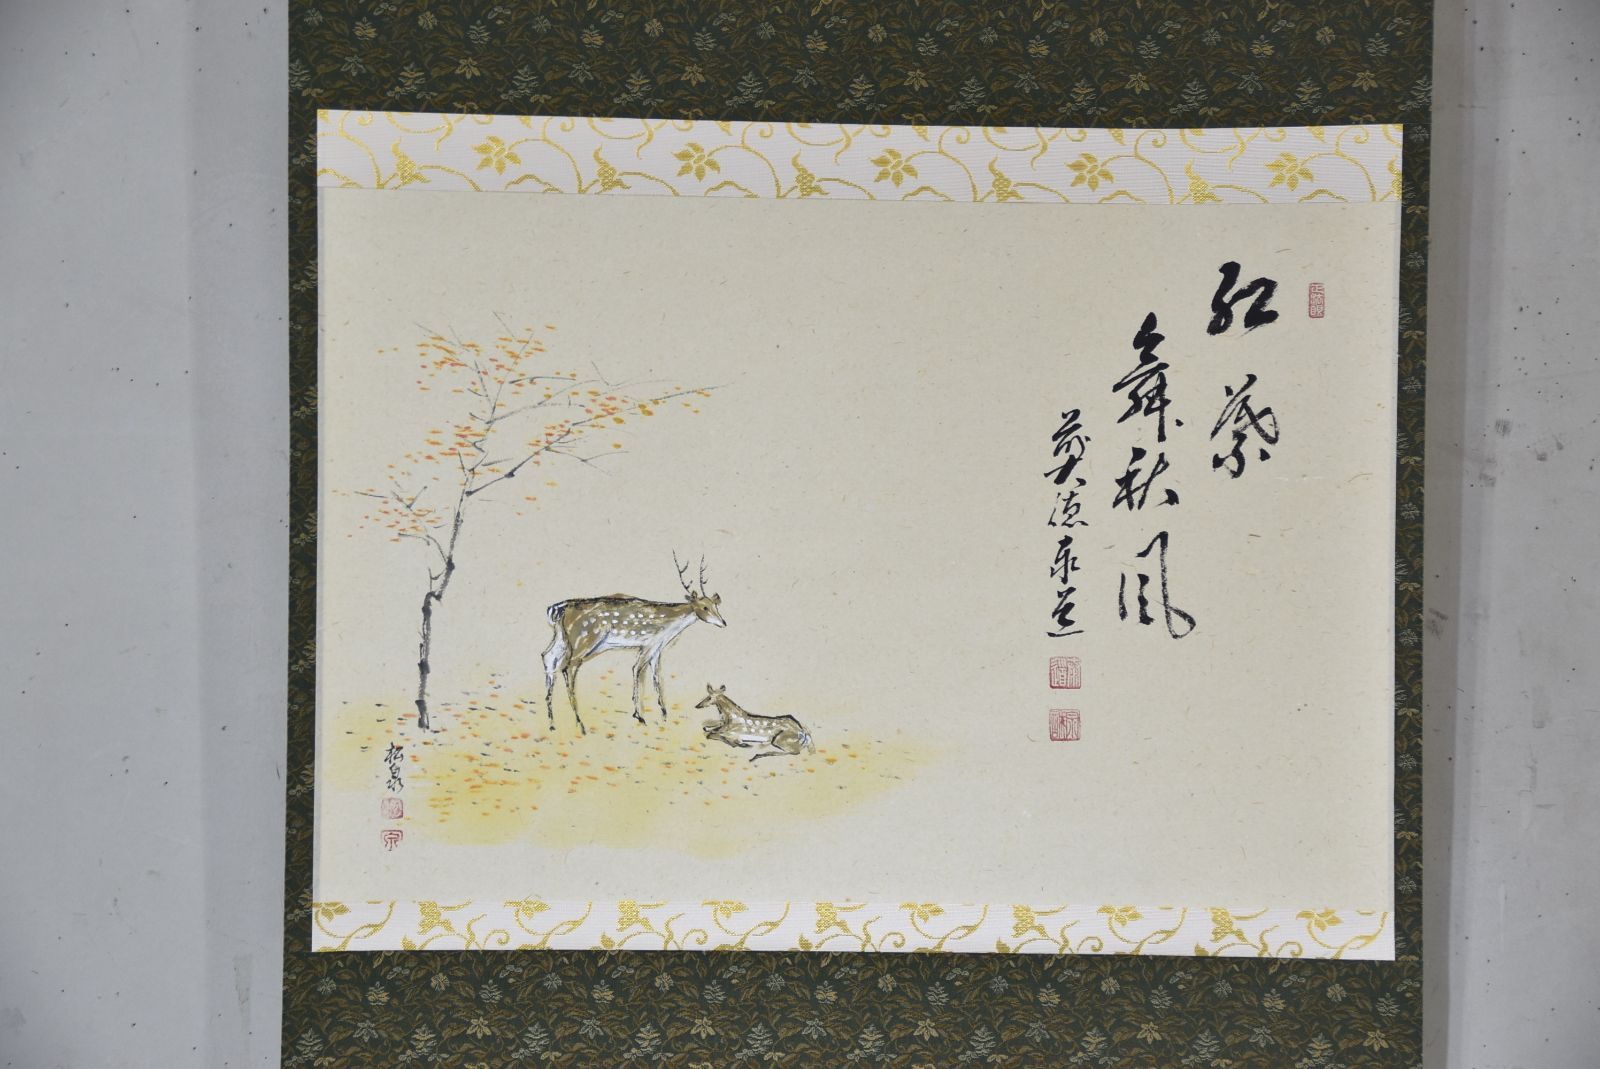 紅葉
舞秋風
前大徳泰道
松泉